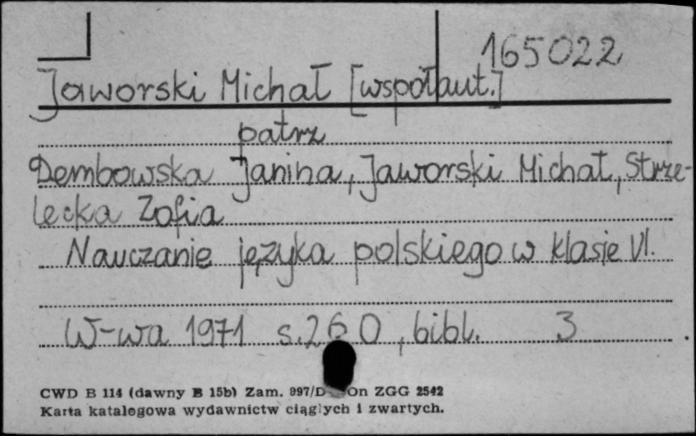 165022
Jaworski Michał [współaut.]
patrz
Dembowska Janina, Jaworski Michał, Strze-
lecka Zofia
Nauczanie języka polskiego w klasie VI.
W-wa 1971 s. 260, bibl. 3
CWD B 114 (dawny B 15b) Zam. 997/D On ZGG 2542
Karta katalogowa wydawnictw ciągłych i zwartych.